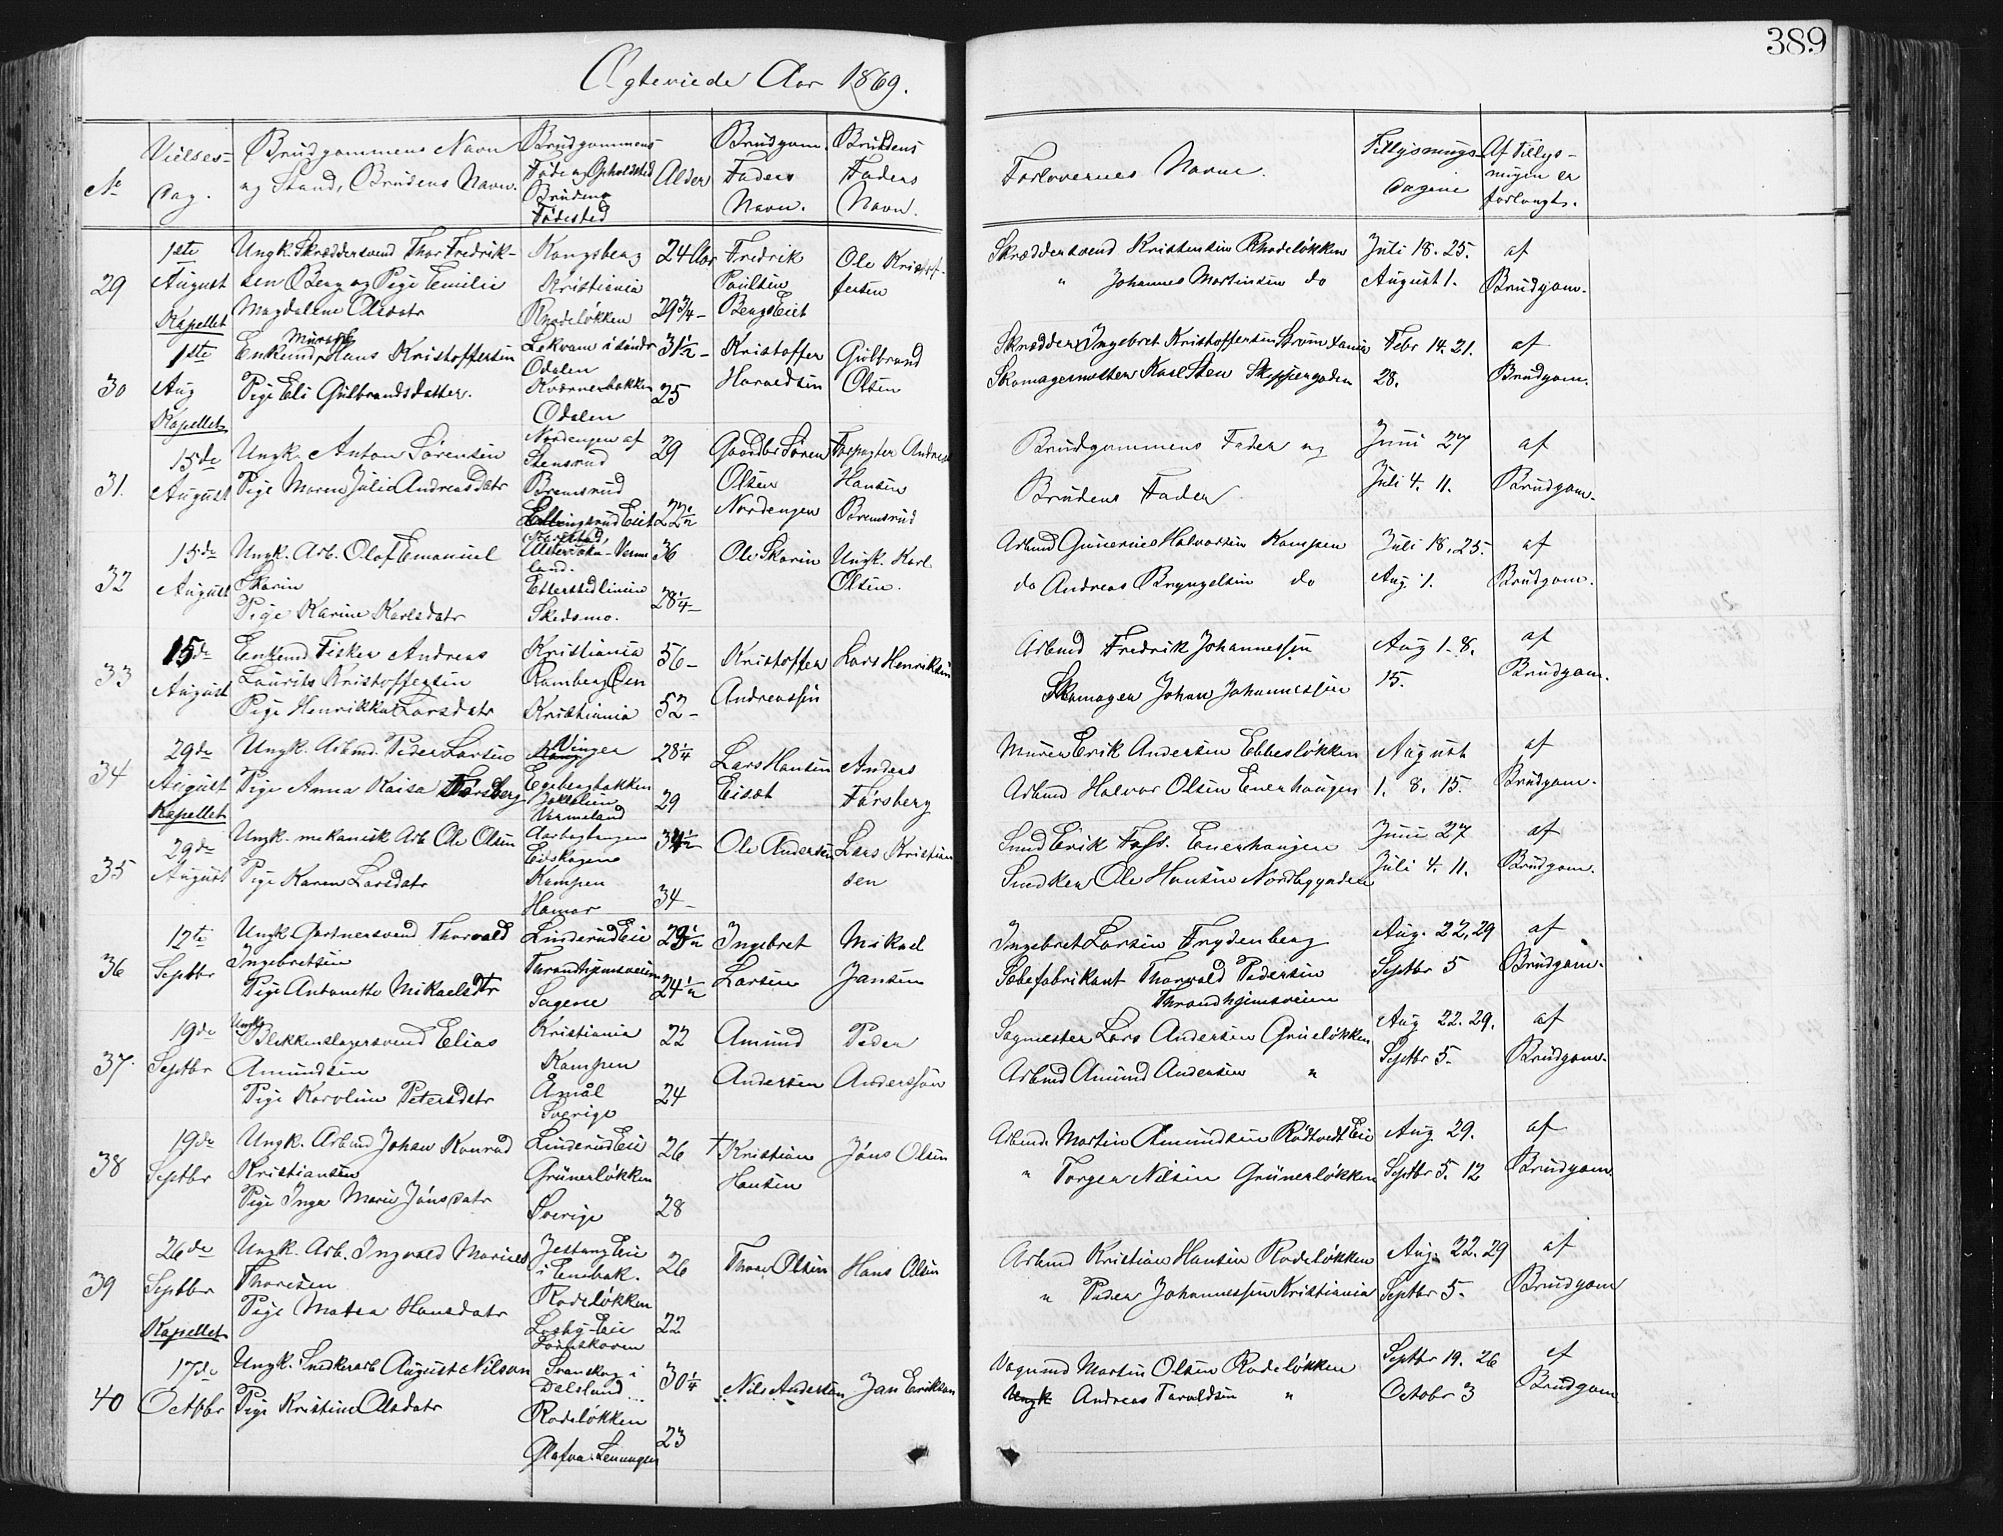 389
Ægteviede Aar 1869.
No
Vielses-
dag.
Brudgommens Navn
og Stand, Brudens Navn.
Brudgommens
Føde og Opholdsted
Brudens
Fødested
Alder
Brudgom.
Faders
Navn.
Brudens
Faders
Navn.
Forlovernes Navne.
Tillysnings-
dagene
Af Tillys-
ningen er
forlangt.
29
1ste
August
Kapellet
Ungk. Skræddersvend Thor Fredrik-
sen Berg og Pige Emilie
Magdalene Olsdatr
Kongsberg
Kristiania
Rhodeløkken
24 Aar
29 3/4 -
Fredrik
Paulsen
Bergs Eiet
Ole Kristof-
fersen
Skræddersvend Kristensen Rhodeløkken
" Johannes Martinsen do
Juli 18. 25.
August 1.
af
Brudgom.
30
1ste
Aug
Kapellet
Enkemd Hans Kristoffersen
Pige Eli Gulbrandsdatter.
Lekvam i søndr
Odalen
Kværnerbakken
Odalen
31 1/2 -
25
Kristoffer
Haraldsen
Gulbrand
Olsen
Skrædder Ingebret Kristoffersen
Skomagermester Karl Sten Skippergaden
Febr 14. 21.
28.
af
Brudgom.
31.
15de
August
Ungk. Anton Sørensen
Pige Maren Julie Andreasdatr
Nordengen af
Stensrud
Bremsrud
Ellingsrud Eiet
29
22 1/2
Gaardbr Søren
Olsen
Nordengen
Forpagter Andreas
Hansen
Bremsrud
Brudgommens Fader og
Brudens Fader
Juni 27
Juli 4. 11.
af
Brudgom.
32
15de
August
Ungk. Arb. Olof Emanuel
Skarin
Pige Karine Karlsdatr
Verm
land.
Etterstedlinien
Skedsmo.
36
28 1/4 -
Ole Skarin
Ungk. Karl
Olsen.
Arbmd Gunerius Halvorsen Kampen
do Andreas Bryngelsen do
Juli 18. 25.
Aug 1.
af
Brudgom.
33
15de
August
Enkemd Fisker Andreas
Laurits Kristoffersen
Pige Henrikka Larsdatr
Kristiania
Ramberg Øen
Kristiania
56 -
52 -
Kristoffer
Andreassen
Lars Henriksen
Arbmd Fredrik Johannessen
Skomager Johan Johannessen
Aug 1. 8.
15.
af
Brudgom.
34
29de
August
Kapellet
Ungk. Arbmd. Peder Larsen
Pige Anna Kaisa Forsberg
Vinger
Egebergbakken
Vermeland
28 1/4
29
Lars Hansen
Eisæt
Anders
Forsberg
Murer Erik Andersen Ebbesløkken
Arbmd Halvor Olsen Enerhaugen
August
1. 8. 15.
af
Brudgom.
35
29de
August
Ungk. mekanisk Arb Ole Olsen
Pige Karen Larsdatr
Eidskogen
Kampen
Hamar
34 1/2
34 -
Ole Andersen
Lars Kristian
sen
Smd Erik Foss. Enerhaugen
Snedker Ole Hansen Nordbygaden
Juni 27
Juli 4. 11.
af
Brudgom.
36
12te
Septbr
Ungk Gartnersvend Thorvald
Ingebretsen
Pige Antonette Mikaelsdtr
Linderud Eie
Throndhjemsveien
Sagene
23 1/2
24 1/2
Ingebret
Larsen
Mikael
Jansen
Ingebret Larsen Frydenberg
Sæbefabrikant Thorvald Pedersen
Throndhjemsveien
Aug. 22, 29
Septbr 5
af
Brudgom.
37.
19de
Septbr
Ungk
Blikkenslagersvend Elias
Amundsen
Pige Karoline Petersdatr
Kristiania
Kampen
Åmål
Sverige
22
24
Amund
Andersen
Peder
Anderssøn
Sagmester Lars Andersen Grüneløkken
Arbmd Amund Andersen "
Aug 22. 29.
Septbr 5.
af
Brudgom.
38
19de
Septbr
Ungk. Arbmd Johan Konrad
Kristiansen
Pige Inga Marie Jönsdatr
Linderud Eie
Grünerløkken
Sverige
26
28
† Kristian
Hansen
Jöns Olsen
Arbmd. Martin Amundsen Rødtvedt Eie
" Torger Nilsen Grünerløkken
Aug 29.
Septbr 5. 12
af
Brudgom
39
26de
Septbr
Kapellet
Ungk. Arb. Ingvald Marius
Thoresen
Pige Mathea Hansdatr
Jestang Eie
i Enebak.
Rodeløkken
Losby-Eie
Lørenskoven
26
22
Thore Olsen
Hans Olsen
Arbmd Kristian Hansen Rodeløkken
" Peder Johannessen Kristiania
Aug. 22. 29
Septbr 5.
af
Brudgom
40
17de
Octbr
Ungk. Snedkerarb August Nilsson
Pige Kristine Olsdatr
Svanskog i
Dalsland
Rodeløkken
30 1/4
23
Nils Andersen
Jan Erikson
Vognmd Martin Olsen Rodeløkken
Andreas Taraldsen "
Septbr 19. 26
October 3
af
Brudgom